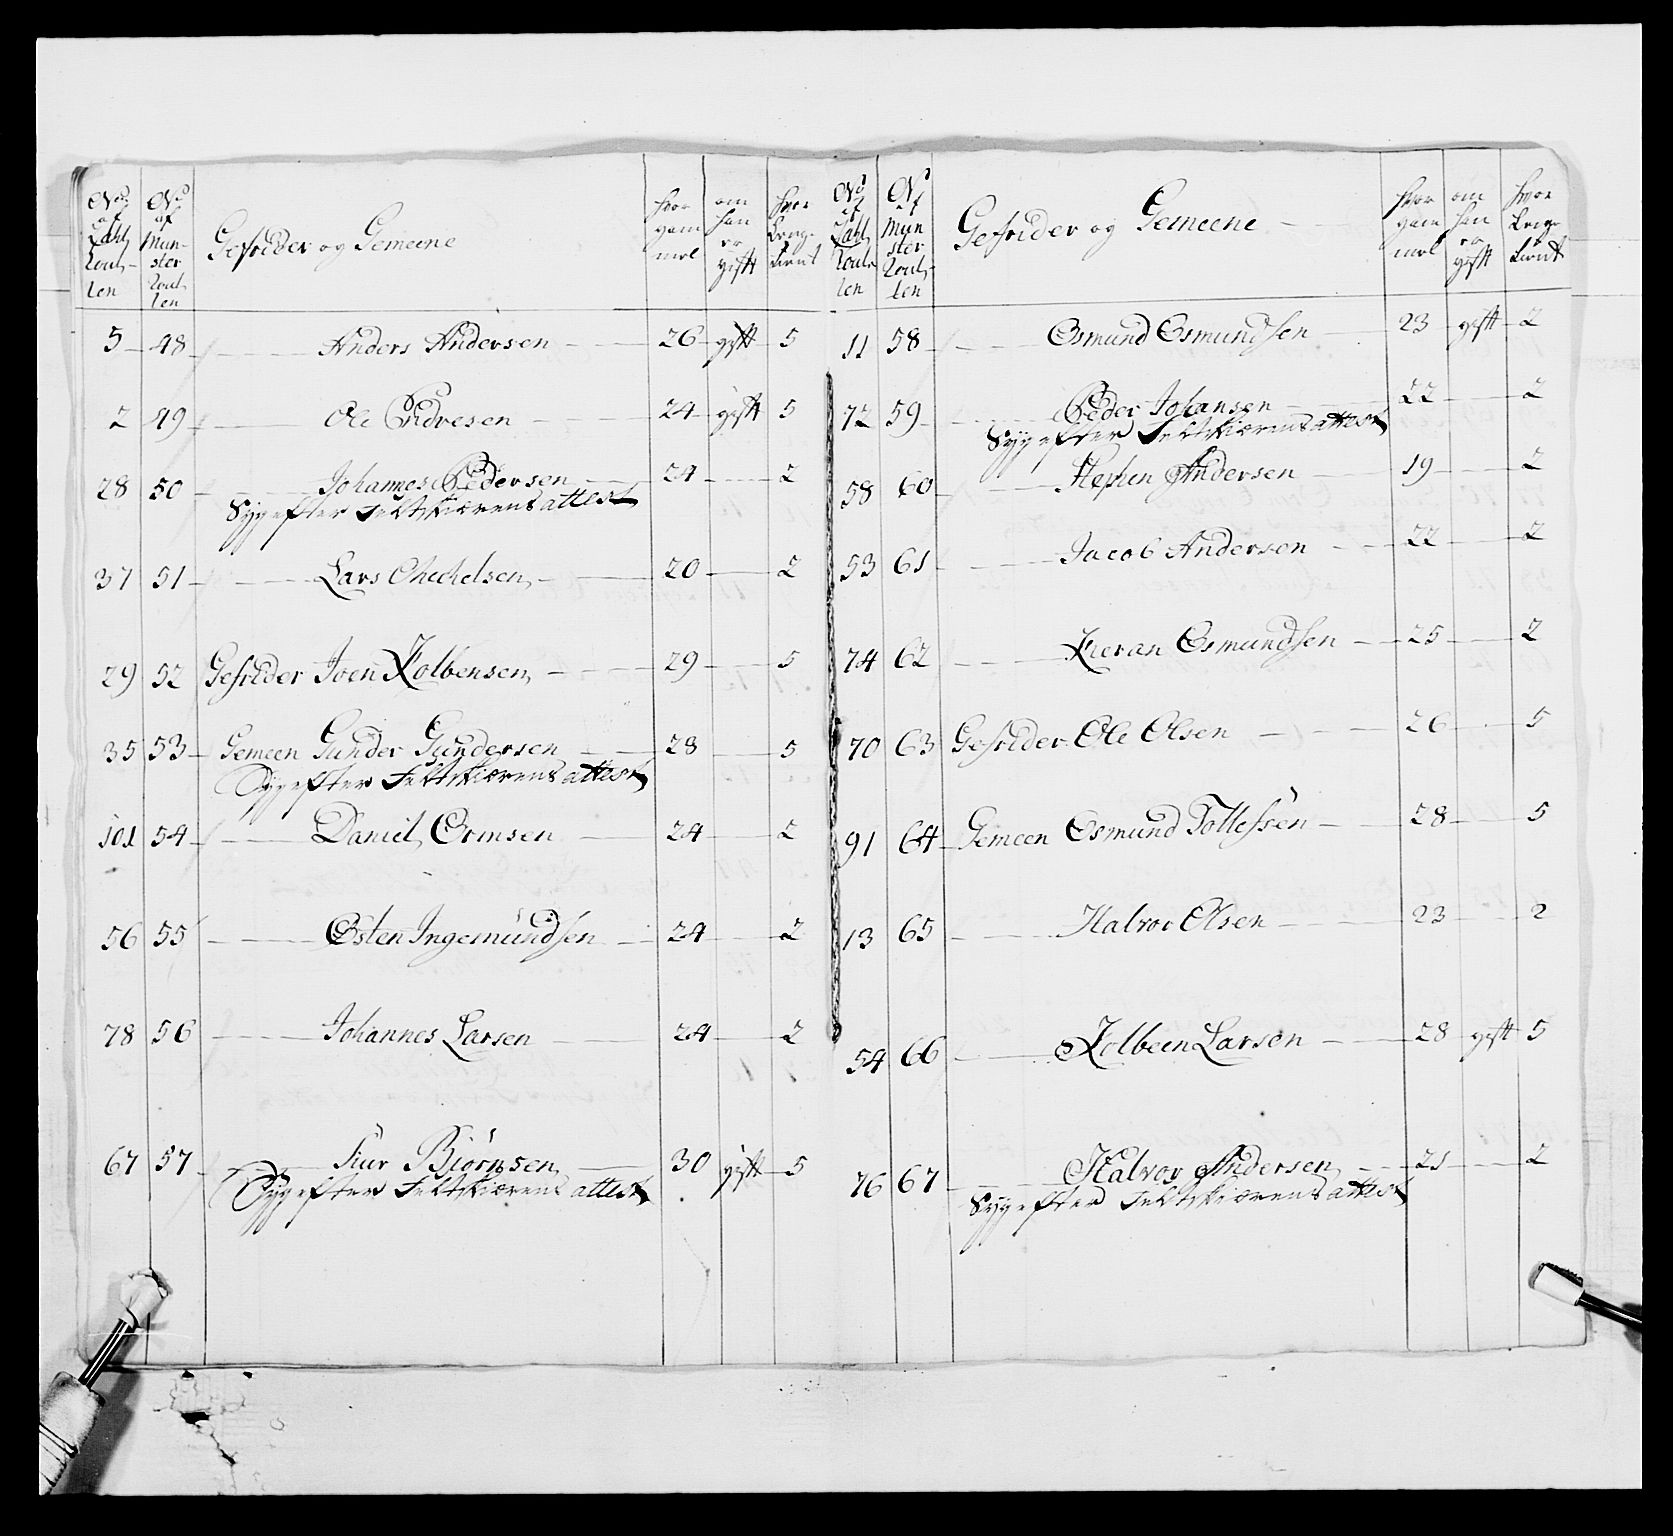 No af Zahl Roul- len | No af Mun- ster Roul- len | Gefrider og Gemeene | hvor gam mel | om han er gift | hvor lenge tient
5 48 Anders Andersen 26 gift 5
2 49 Ole Endresen 24 gift 5
28 50 Johannes Pedersen 24 2
Syg efter Feltskiærens attest
37 51 Lars Chechelsen 20 2
29 52 Gefrider Joen Kolbensen 29 5
35 53 Gemeen Gunder Gundersen 28 5
Syg efter Feltskiærens attest
101 54 Daniel Ormsen 24 2
56 55 Østen Ingemundsen 24 2
78 56 Johannes Larsen 24 2
67 57 Siur Biörnsen 30 gift 5
Syg efter Feltskiærens attest
No af Zahl Roul- len | No af Mun ster Roul- len | Gefrider og Gemeene | hvor gam mel | om han er gift | hvor lenge tient
11 58 Osmund Osmundsen 23 gift 2
72 59 Peder Johansen 22 2
Syg efter Feltskiærens attest
58 60 Stephen Andersen 19 2
53 61 Jacob Andersen 22 2
74 62 Osmundsen 25 2
70 63 Gefrider Ole Olsen 26 5
91 64 Gemeen Osmund Tollefsen 28 5
13 65 Halvor Olsen 23 2
54 66 Kolbeen Larsen 28 gift 5
76 67 Halvor Andersen 21 2
Syg efter Feltskiærens attest